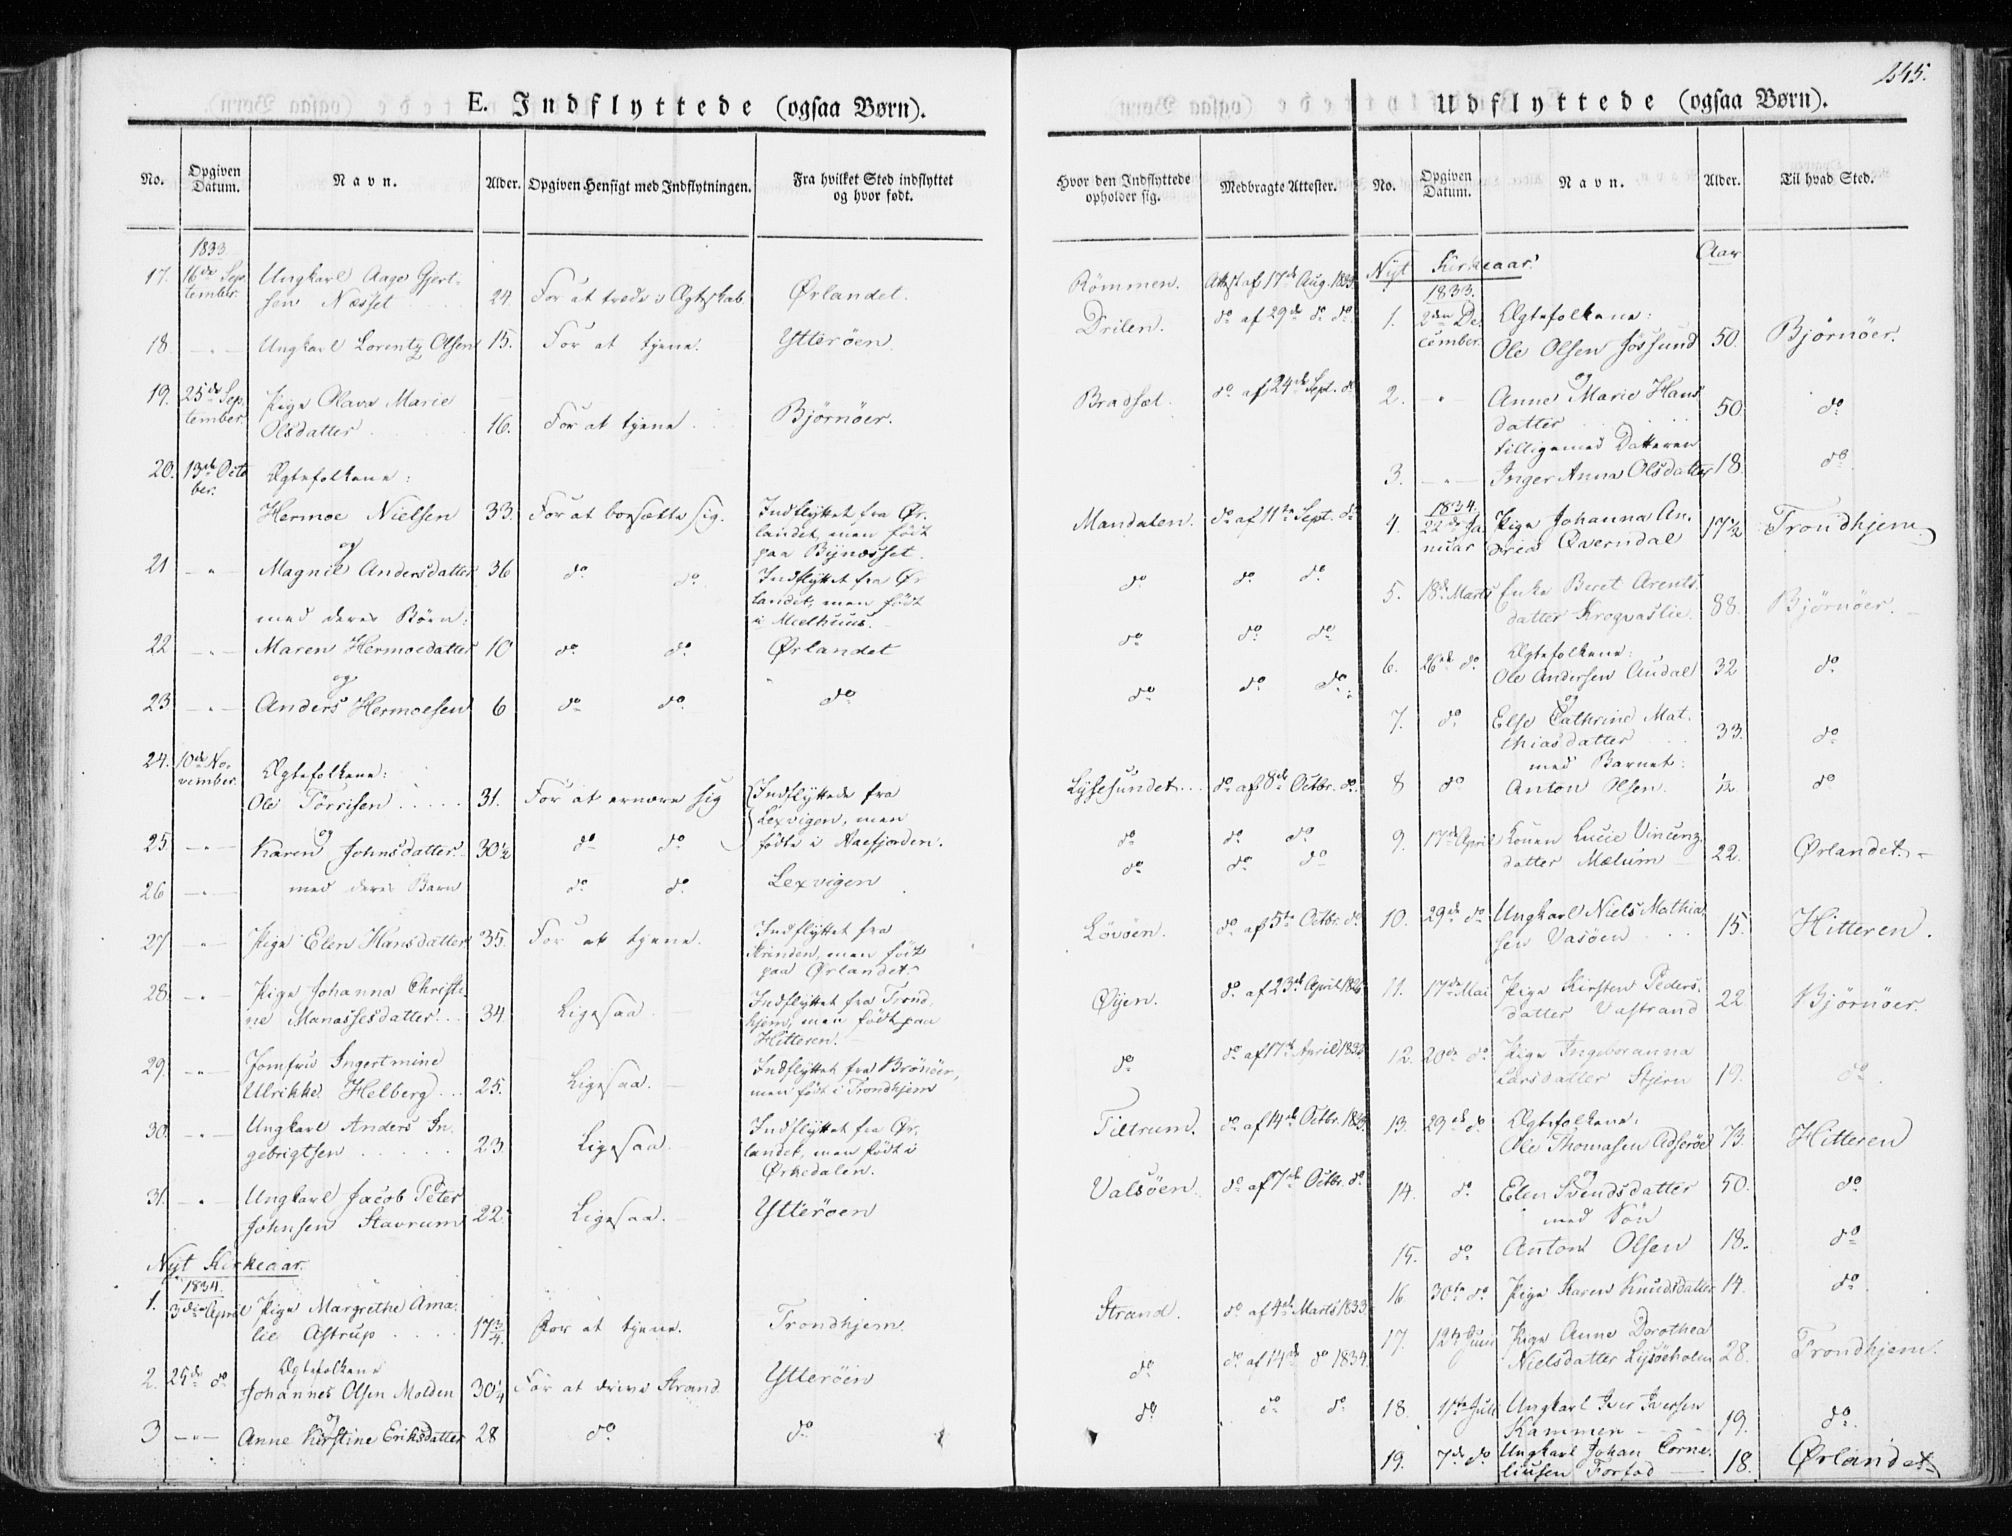 245.
E. Indflyttede (ogsaa Børn).
No. Opgiven Datum. Navn. Alder. Opgiven Hensigt med Indflytningen. Fra hvilket Sted indflyttet og hvor født. Hvor den Indflyttede opholder sig. Medbragte Attester.
1833.
17. 16de Sep- Ungkarl Aage Gjert-
tember. sen Næsset 24. For at træde i Ægteskab Ørlandet. Römmen. Attest af 17de Aug. 1833.
18 - " - Ungkarl Lorentz Olsen 15. For at tjene. Ytteröen. Drilen. do af 29de do do
19. 25de Sep- Pige Olava Marie
tember. Olsdatter 16. For at tjene Björnöer. Bradset. do af 24de Sept. do
20. 13de Octo- Ægtefolkene:
ber.
Hermoe Nielsen 33. For at bosætte sig. Indflyttet fra Ør-
landet, men födt
paa Bynæsset. Mandalen. do af 11te Sept. do
og
21 - " Magnil Andersdatter 36 do do Indflyttet fra Ør-
landet, men födt
i Melhuus. do do do
med deres Börn:
22 - " - Maren Hermoedatter 10 do do Ørlandet do do do
og
23 - " - Anders Hermoesen 6 do do do do do do
24. 10de No- Ægtefolkene:
vember.
Ole Törrisen 31. For at ernære sig Indflyttede fra
Lexvigen, men
födte i Aaefjorden. Lysesundet do af 8de Octbr. do
og
25 - " - Karen Johnsdatter 30½ do do do do do
26 - " - med deres Barn do do Lexvigen do do do
27 - " - Pige Elen Hansdatter 35. For at tjene. Indflyttet fra
Strinden, men födt
paa Ørlandet. Lövöen. do af 5te Octbr. do
28. - " - Pige Johanna Christi-
ne Manassesdatter 34 Ligesaa. Indflyttet fra Trond-
hjem, men födt paa
Hitteren. Øyen. do af 23de April 1826
29. - " - Jomfru Ingertmine
Ulrikke Helberg 25. Ligesaa. Indflyttet fra Brönöer,
men födt i Trondhjem do do af 17de April 1833
30. - " - Ungkarl Anders In-
gebrigtsen 23. Ligesaa Indflyttet fra Ør-
landet, men födt i
Ørkedalen. Tiltrum. do af 14de Octbr. 1833.
31. - " Ungkarl Jacob Peter
Johnsen Stavrum 22. Ligesaa. Ytteröen Valsöen. do af 7de Octbr. do
Nyt Kirkeaar.
1834.
1. 3die April Pige Margrethe Ama-
lie Astrup 17¾ For at tjene. Trondhjem. Strand. do af 4de Marts 1833
2. 25de do Ægtefolkene
Johannes Olsen Molden 30¼ For at drive Strand Ytteröen do do af 14de do 1834.
og
3 - " - Anne Kirstine Eriksdatter 28 do do do do do
Udflyttede (ogsaa Børn).
No. Opgiven Datum. Navn. Alder. Til hvad Sted.
Nyt Kirkeaar. Aar
1833.
1. 2den De- Ægtefolkene:
cember. Ole Olsen Jössund 50. Björnöer.
og
2. - " - Anne Marie Hans-
datter 50 do
tilligemed Datteren
3. - " - Inger Anna Olsdatter 18. do
1834.
4. 22de Ja- Pige Johanna An-
nuar drea Øverndal 17½ Trondhjem
5. 18de Marts Enke Beret Arents-
datter Krogvaslie 88. Björnöer.
6. 26de do Ægtefolkene:
Ole Andersen Audal 32 do
og
7. do Else Cathrine Mat-
thiasdatter 33. do
med Barnet:
8 do Anton Olsen. ½ do
9. 17de April Konen Lucie Vincenz-
datter Mælum 22. Ørlandet.
10. 29de do Ungkarl Niels Mathia-
sen Vasöen 15. Hitteren.
11. 17de Mai Pige Kirsten Peders-
datter Vastrand 22 Björnöer.
12. 20de do Pige Ingeboranna
Larsdatter Stjern 19. do.
13. 29de do Ægtefolkene:
Ole Thomasen Adseröe 73. Hitteren
og
14. do. Elen Svendsdatter 50. do
med Sön
15. do Anton Olsen 18. do
16 30te do Pige Karen Knudsdatter 14. do.
17. 12te Juni Pige Anne Dorothea
Nielsdatter Lysöeholm 28. Trondhjem.
18. 11te Juli Ungkarl Iver Iversen
Kammen 19. do.
19. 7de do Ungkarl Johan Corne-
liusen Forfod 18. Ørlandet